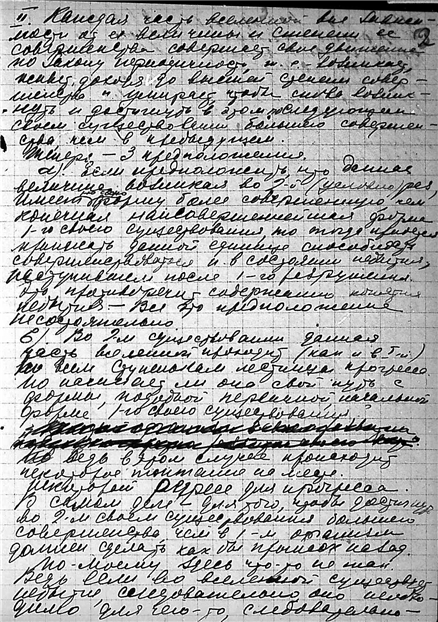 II. Каждая часть вселенной вне зависи-
мости от ее величины и степени ее
совершенства совершает свое движение
по закону периодичности т.е. возникает,
живет, доходя до высшей степени совер-
шенства и умирает чтобы снова возник-
нуть и достигнуть в этом следующем
своем существовании большего совершен-
ства чем в предыдущем.
Теперь – 3 предположения.
а) Если предположить, что данная
величина, возникая во 2-й (условно) раз,
имеет форму более совершенную чем
конечная наисовершеннейшая форма
1-го своего существования, то тогда придется
приписать данной единице способность
совершенствоваться и в состоянии небытия,
наступившем после 1-го разрушения.
Это противоречит содержанию понятия
небытия – Все это предположение
несостоятельно.
б) Во 2-м существовании данная
часть вселенной проходит (как и в 1-м)
по всем ступенькам лестницы прогресса
но начинает ли она свой путь с
формы, подобной первичной начальной
форме 1-го своего существования?
Но ведь в этом случае происходит
некоторое топтание на месте.
Некоторый регресс для прогресса
В самом деле – для того, чтобы достигнуть
во 2-м своем существовании большего
совершенства, чем в 1-м организм
должен сделать как бы прыжок назад.
По-моему здесь что-то не так.
Ведь если во вселенной существует
небытие следовательно оно необхо-
димо, для чего-то, следовательно –